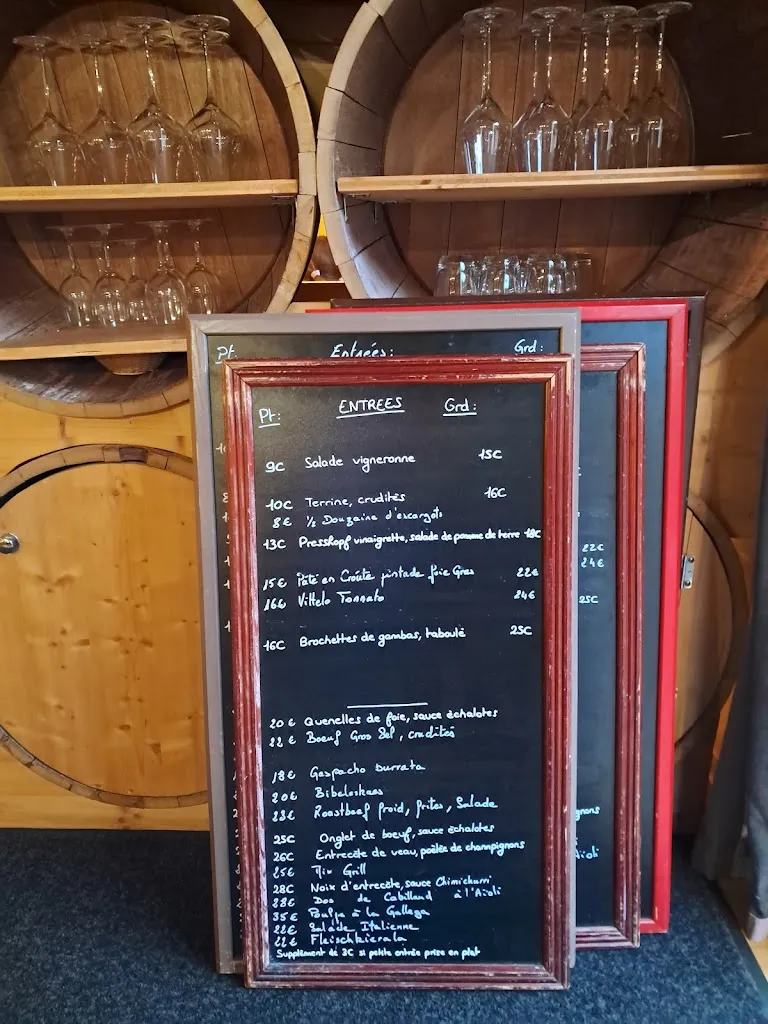 Pt: Entrées: Grd:
Pt: ENTREES Grd:
9€ Salade vigneronne 15€
10€ Terrine, crudités 16€
8€ ½ Douzaine d'escargots
13€ Presskopf vinaigrette, salade de pomme de terre 18€
15€ Pâté en Croûte pintade foie Gras 22€
16€ Vittelo Tonnato 24€
16€ Brochettes de gambas, taboulé 25€
20€ Quenelles de foie, sauce échalotes
22€ Boeuf Gros Sel, crudités
18€ Gaspacho burrata
20€ Bibeleskaes
23€ Roastbeef froid, frites, Salade
25€ Onglet de boeuf, sauce échalotes
26€ Entrecôte de veau, poêlée de champignons
25€ Mix Grill
28€ Noix d'entrecôte, sauce Chimichurri
28€ Dos de Cabillaud à l'Aïoli
35€ Poulpe à la Gallega
22€ Salade Italienne
22€ Fleischkierala
Supplément de 3€ si petite entrée prise en plat
22€
24€
25€